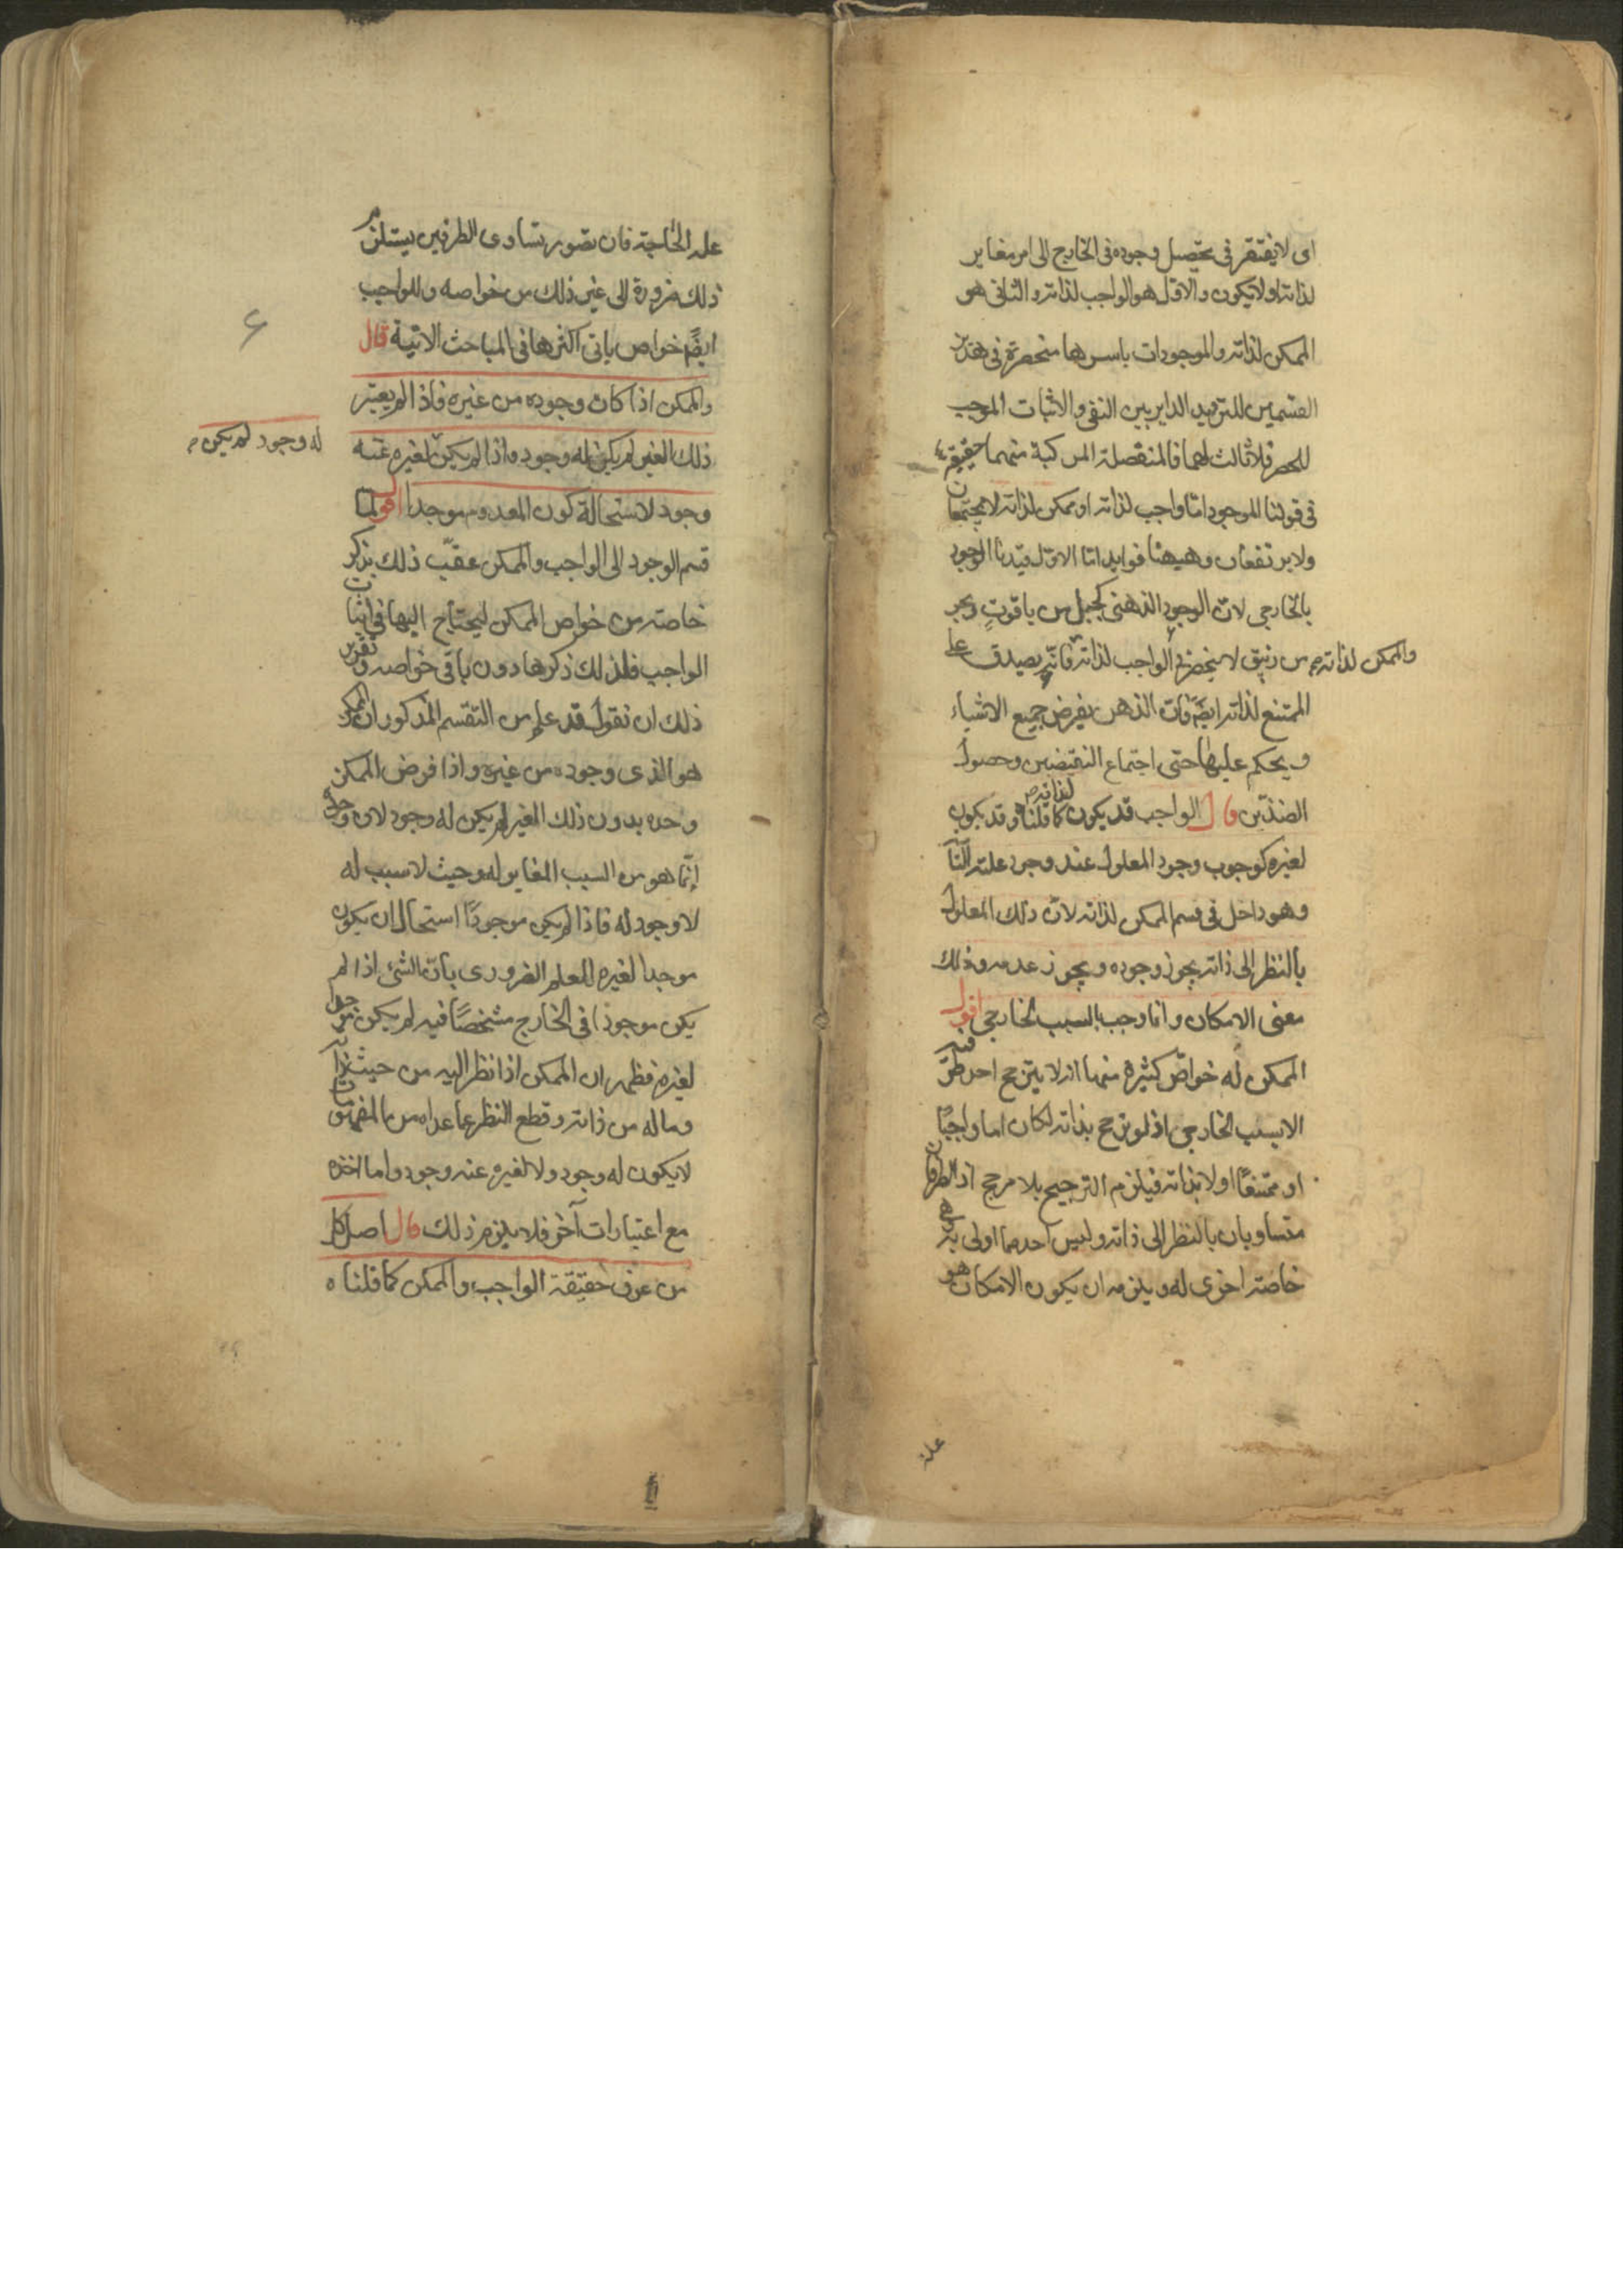 اى لا يفتقر فى تحصيل وجوده فى الخارج الى امر مغاير
لذاته او لا يكون والاول هو الواجب لذاته والثانى هو
الممكن لذاته والموجودات باسرها منحصرة فى هذين
القسمين للترديد الداير بين النفى والاثبات الموجب
للحصر فلا ثالث لهما فالمنفصلة المركبة منهما حقيقية
فى قولنا الموجود اما واجب لذاته او ممكن لذاته لا يجتمعان
ولا يرتفعان وهيهنا فوايد اما الاول قيدنا الوجود
بالخارجى لان الوجود الذهنى كجبل من ياقوت وبحر
من زئبق لا ينحصر فى الواجب لذاته فانه يصدق على
والممكن لذاته م
الممتنع لذاته ايضً فان الذهن يفرض جميع الاشياء
ويحكم عليها حتى اجتماع النقيضين وحصول
الضدّين قال الواجب قد يكون كما قلنا وقد يكون
لذاته م
لغيره كوجوب وجود المعلول عند وجود علته التآ
وهو داخل فى قسم الممكن لذاته لان ذلك المعلول
بالنظر الى ذاته يجوز وجوده ويجوز عدمه وذلك
معنى الامكان وانما وجب بالسبب الخارجى اقول
الممكن له خواصّ كثيرة منها انه لا يترجح احد طرفيه
الا بسبب الخارجى اذ لو ترجح بذاته لكان اما واجبًا
او ممتنعًا اولا بذاته فيلزم الترجيح بلا مرجح اذ الطرفان
متساويان بالنظر الى ذاته وليس احدهما اولى به وهى
خاصة اخرى له ويلزمه ان يكون الامكان هو
علة
علة الحاجة فان تصور تساوى الطرفين يستلزم
ذلك ضرورة الى غير ذلك من خواصه وللواجب
ايضً خواص ياتى اكثرها فى المباحث الاتية قال
والممكن اذا كان وجوده من غيره فاذا لم يعتبر
ذلك الغير لم يكن له وجود واذا لم يكن لغيره عنه
له وجود لم يكن م
وجود لاستحالة كون المعدوم موجدا اقول لما
قسم الوجود الى الواجب والممكن عقّب ذلك بذكر
خاصة من خواص الممكن ليحتاج اليها فى اثبات
الواجب فلذلك ذكرها دون باقى خواصه وتقرير
ذلك ان نقول قد علم من التقسيم المذكور ان الممكن
هو الذى وجوده من غيره واذا فرض الممكن
وحده بدون ذلك الغير لم يكن له وجود لان وجوده
انّما هو من السبب المغاير له وحيث لا سبب له
لا وجود له فاذا لم يكن موجودًا استحال ان يكون
موجدا لغيره للعلم الضرورى بان الشئ اذا لم
يكن موجودا فى الخارج مشخصًا فيه لم يكن موجدا
لغيره فظهر ان الممكن اذا نظر اليه من حيث ذاته
وماله من ذاته وقطع النظر عما عداه من المفهومات
لا يكون له وجود ولا لغيره عنه وجود واما اخذه
مع اعتبارات آخر فلا يلزم ذلك قال اصل كل
من عرف حقيقة الواجب والممكن كما قلناه